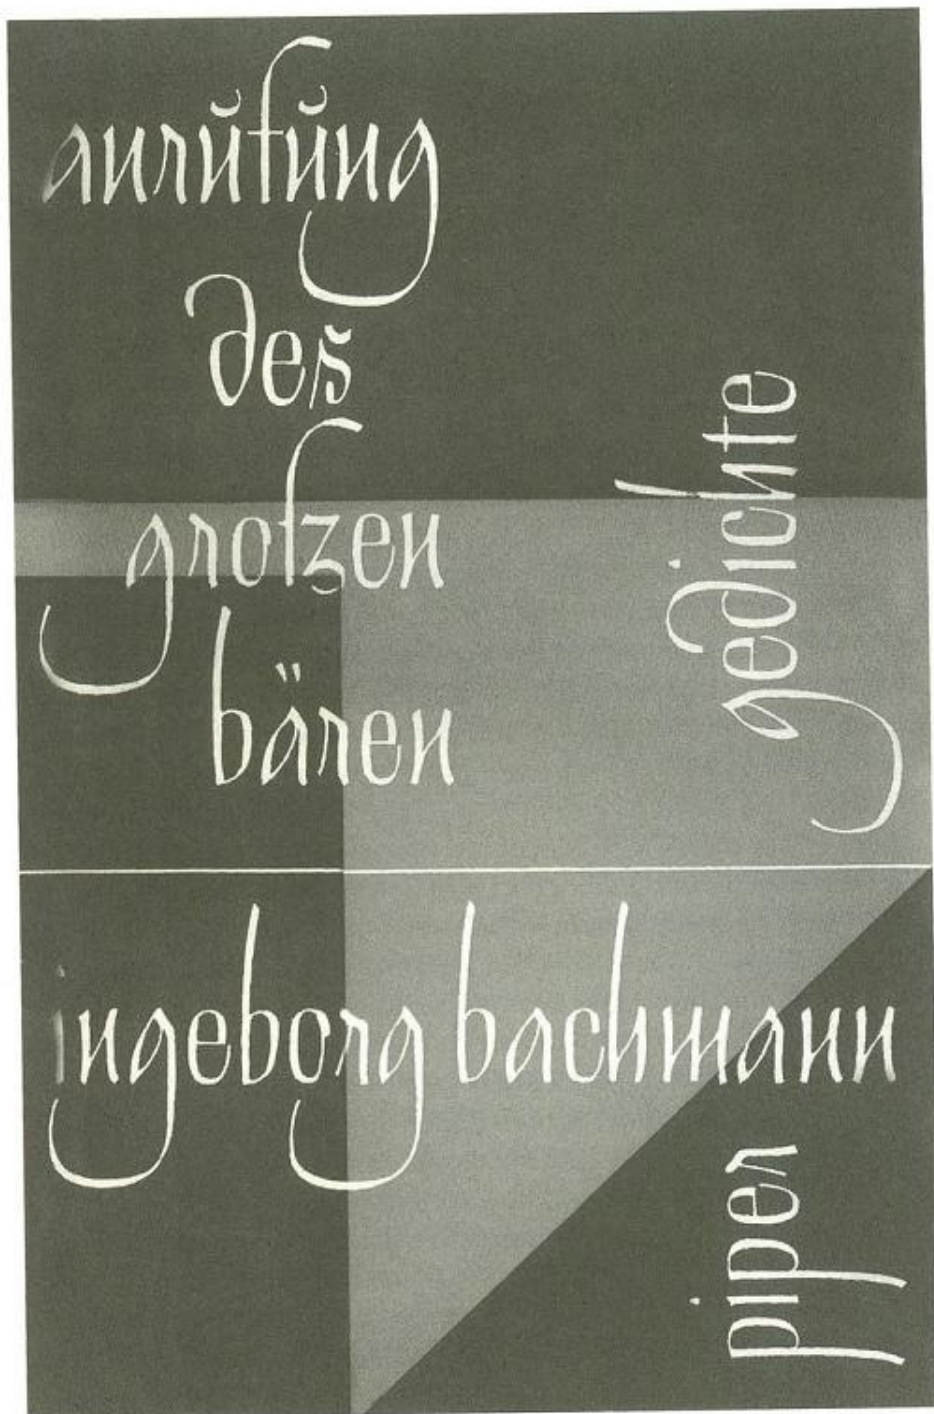 anrufung
des
großen
bären
gedichte
ingeborg bachmann
piper